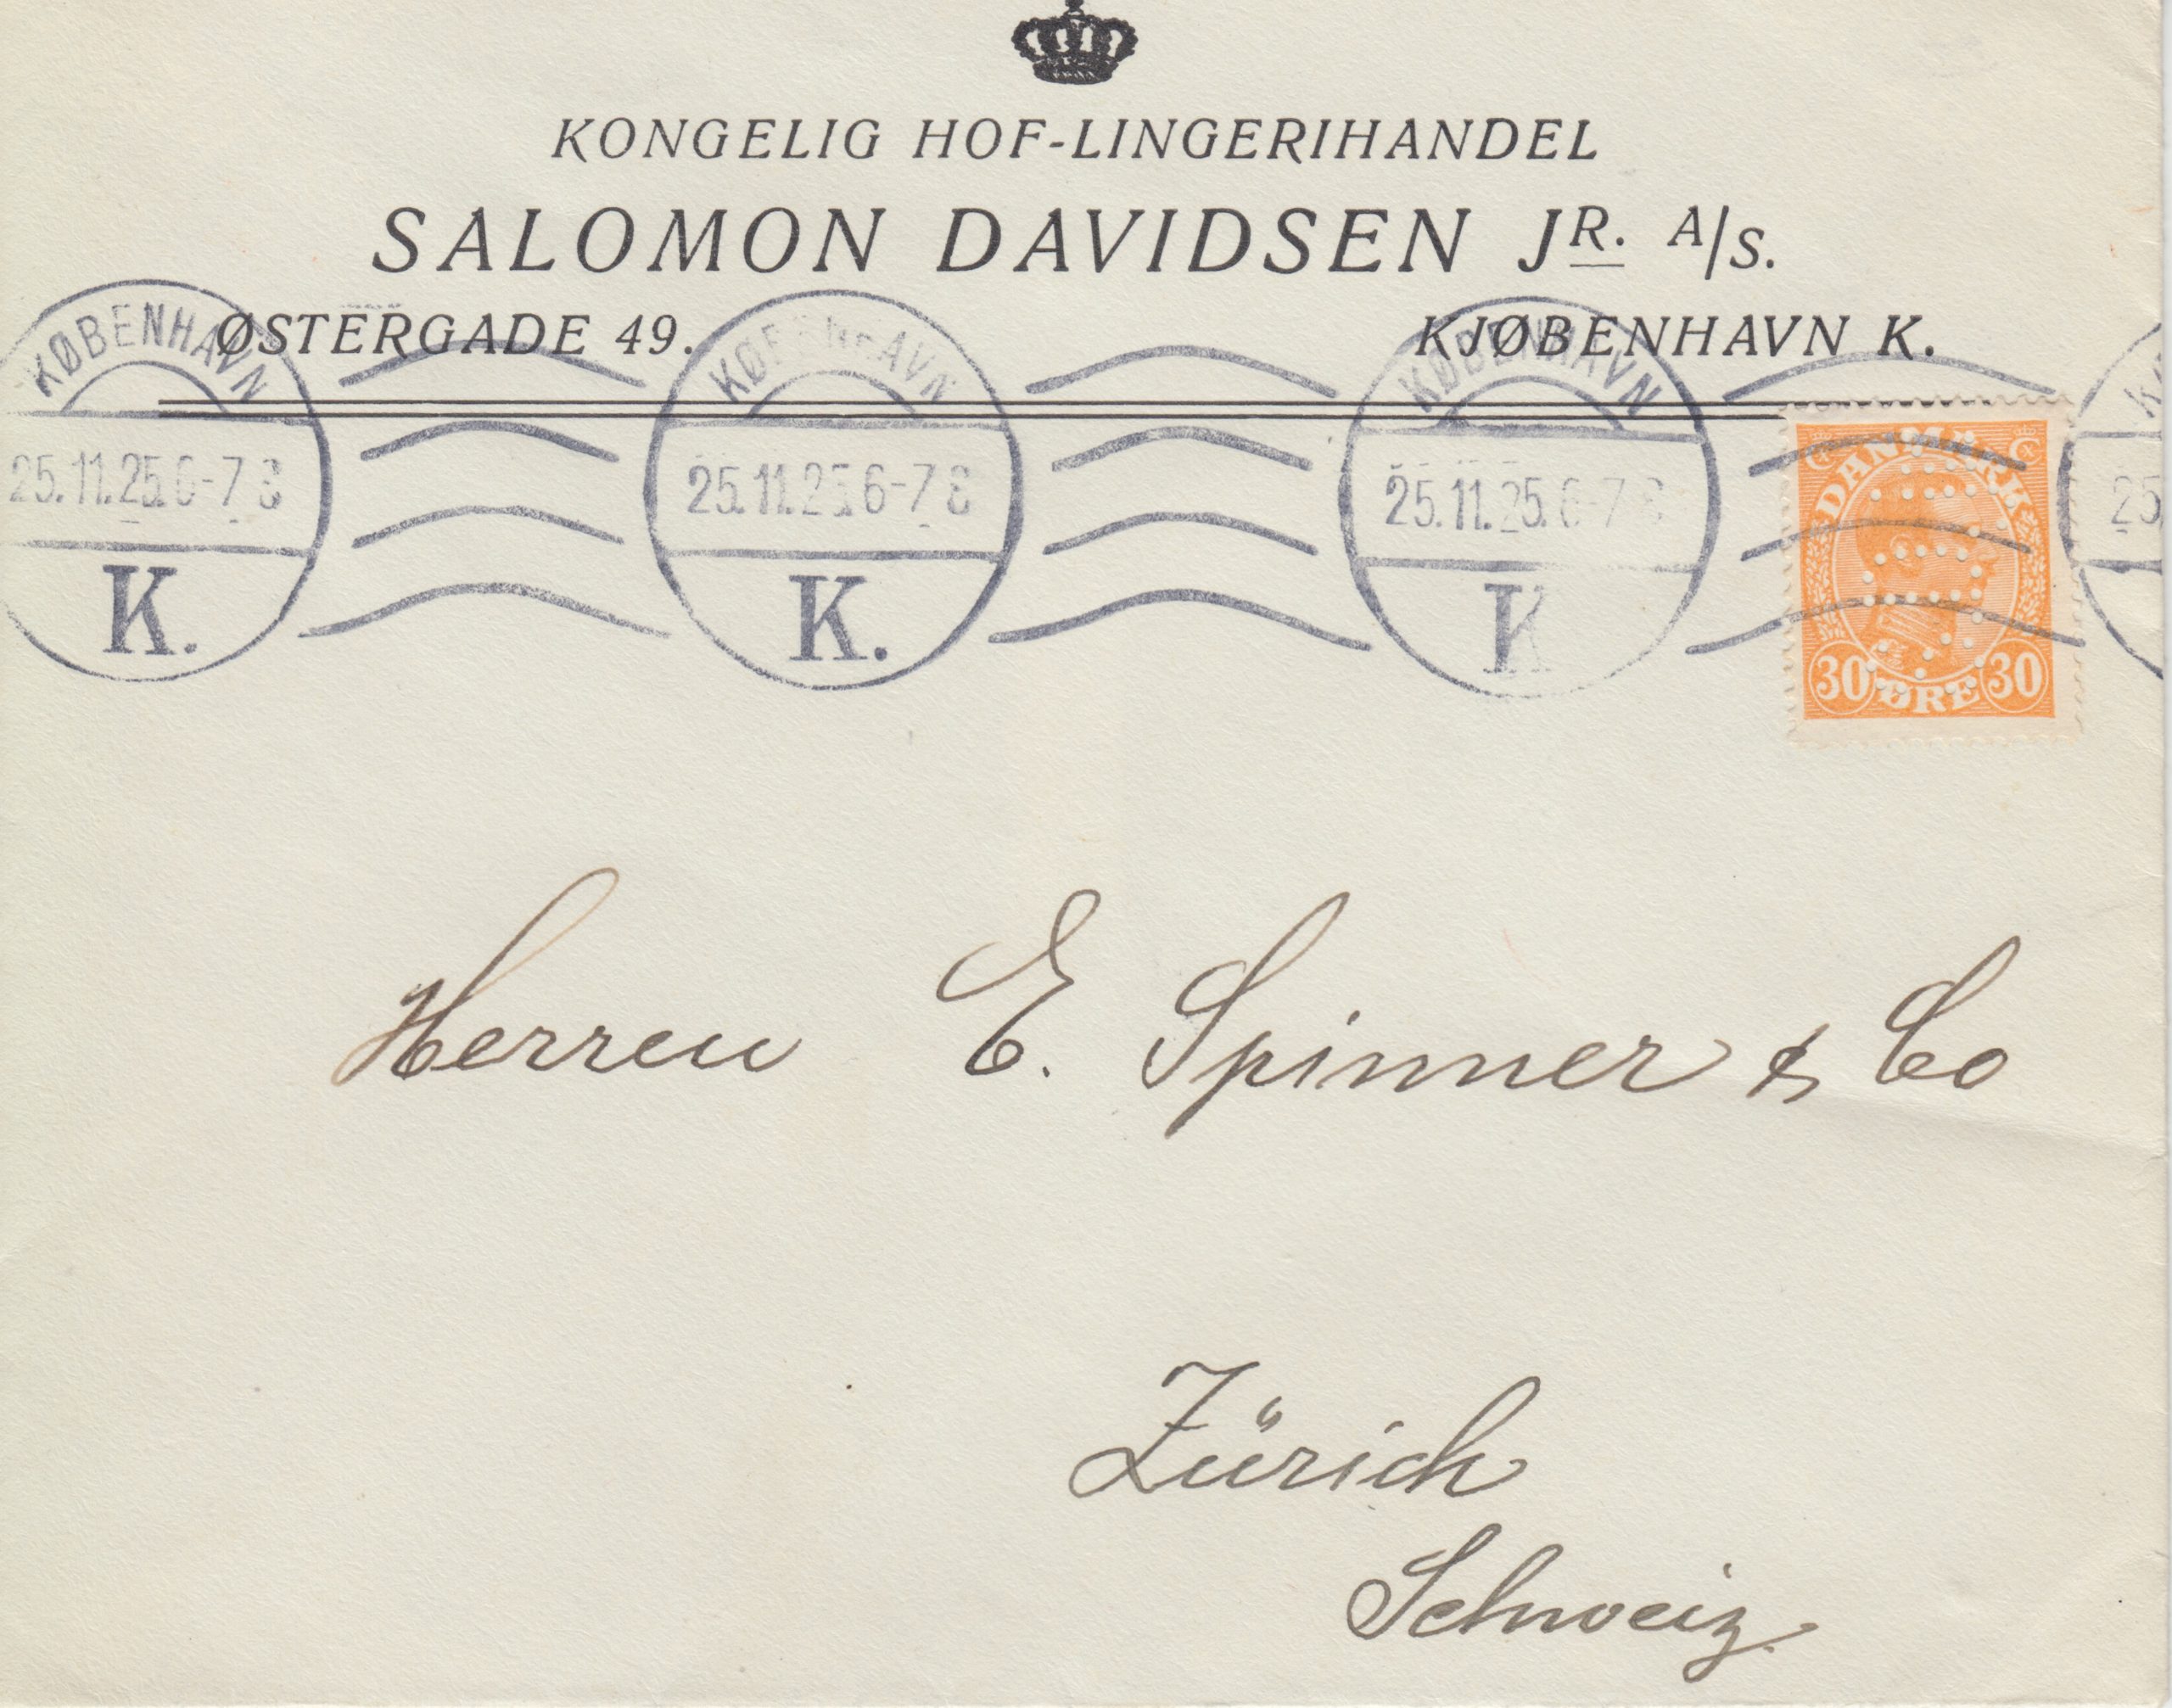 KONGELIG HOF-LINGERIHANDEL
SALOMON DAVIDSEN JR. A/S.
ØSTERGADE 49. KJØBENHAVN K.
KØBENHAVN KØBENHAVN KØBENHAVN
25.11.25. 6-7 25.11.25. 6-7 25.11.25. 6-7 25
K. K. K
DANMARK
30 ØRE 30
Herren E. Spinner & Co
Zürich
Schweiz.